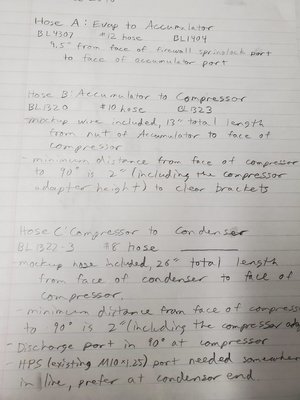 Hose A: Evap to Accumulator
BL4307 #12 hose BL1404
9.5" from face of firewall springlock port
to face of accumulator port
Hose B: Accumulator to Compressor
BL1320 #10 hose BL1323
- mockup wire included, 13" total length
from nut of Accumulator to face of
compressor
- minimum distance from face of compressor
to 90° is 2" (including the compressor
adapter height) to clear brackets
Hose C: Compressor to Condenser
BL1322-3 #8 hose
- mockup hose included, 26" total length
from face of condenser to face of
compressor.
- minimum distance from face of compress
to 90° is 2" (including the compressor ada
- Discharge port in 90° at compressor
- HPS (existing M10x1.25) port needed somewher
in line, prefer at condensor end.